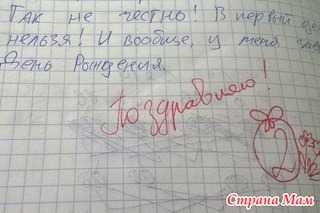 Так не честно! В первый
нельзя! И вообще, у меня
День Рождения.
Поздравляю!
2
Страна Мам